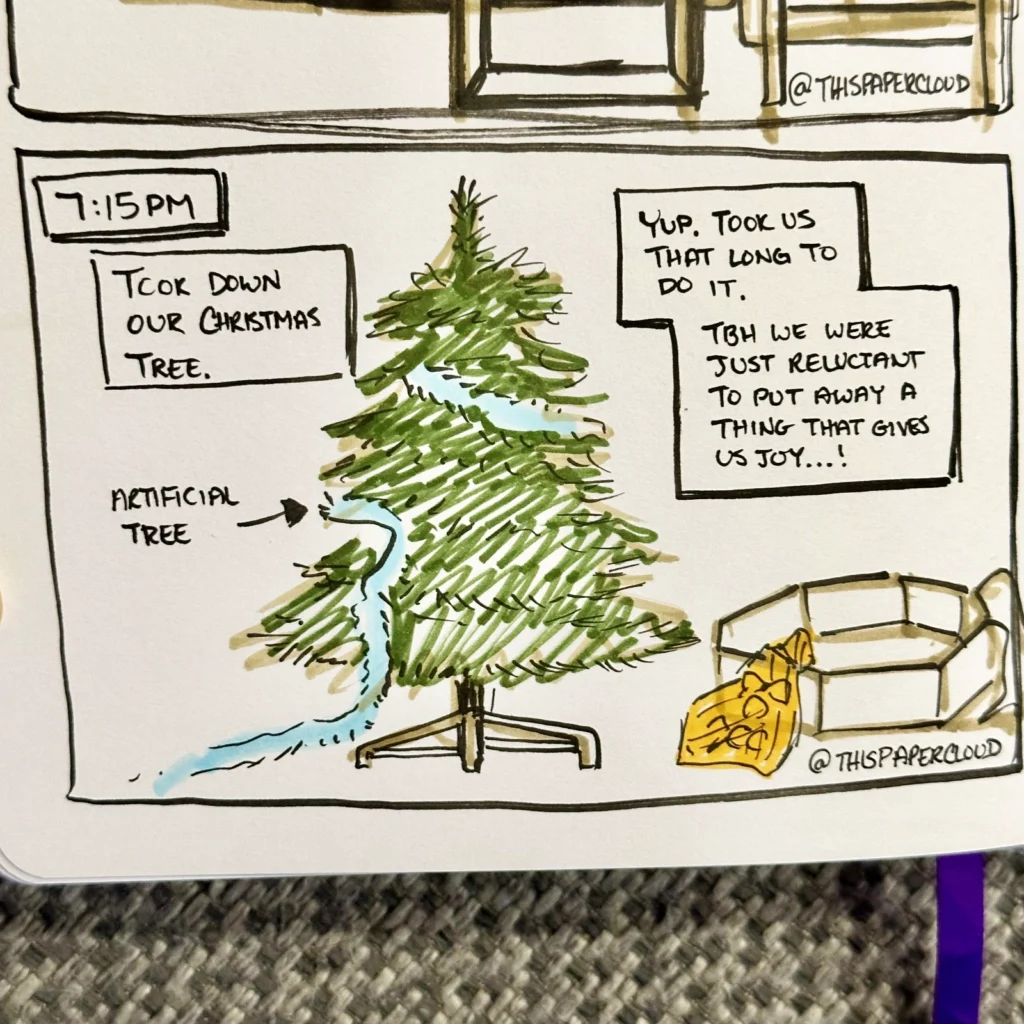 @THISPAPERCLOUD
7:15PM
TOOK DOWN
OUR CHRISTMAS
TREE.
YUP. TOOK US
THAT LONG TO
DO IT.
TBH WE WERE
JUST RELUCTANT
TO PUT AWAY A
THING THAT GIVES
US JOY...!
ARTIFICIAL
TREE
@THISPAPERCLOUD